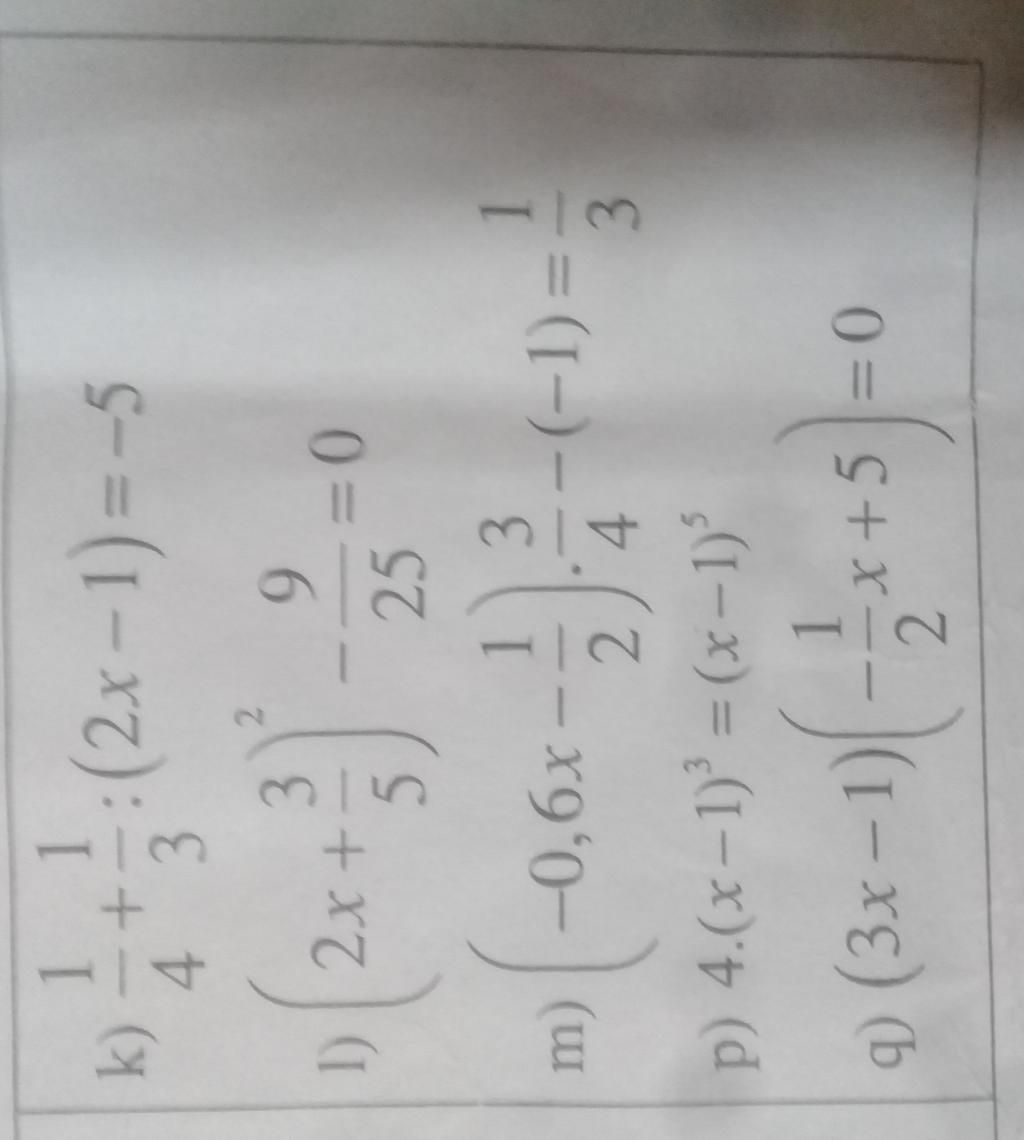 k) \frac{1}{4} + \frac{1}{3} : (2x - 1) = -5
l) \left( 2x + \frac{3}{5} \right)^2 - \frac{9}{25} = 0
m) \left( -0,6x - \frac{1}{2} \right) . \frac{3}{4} - (-1) = \frac{1}{3}
p) 4.(x - 1)^3 = (x - 1)^5
q) (3x - 1) \left( -\frac{1}{2}x + 5 \right) = 0